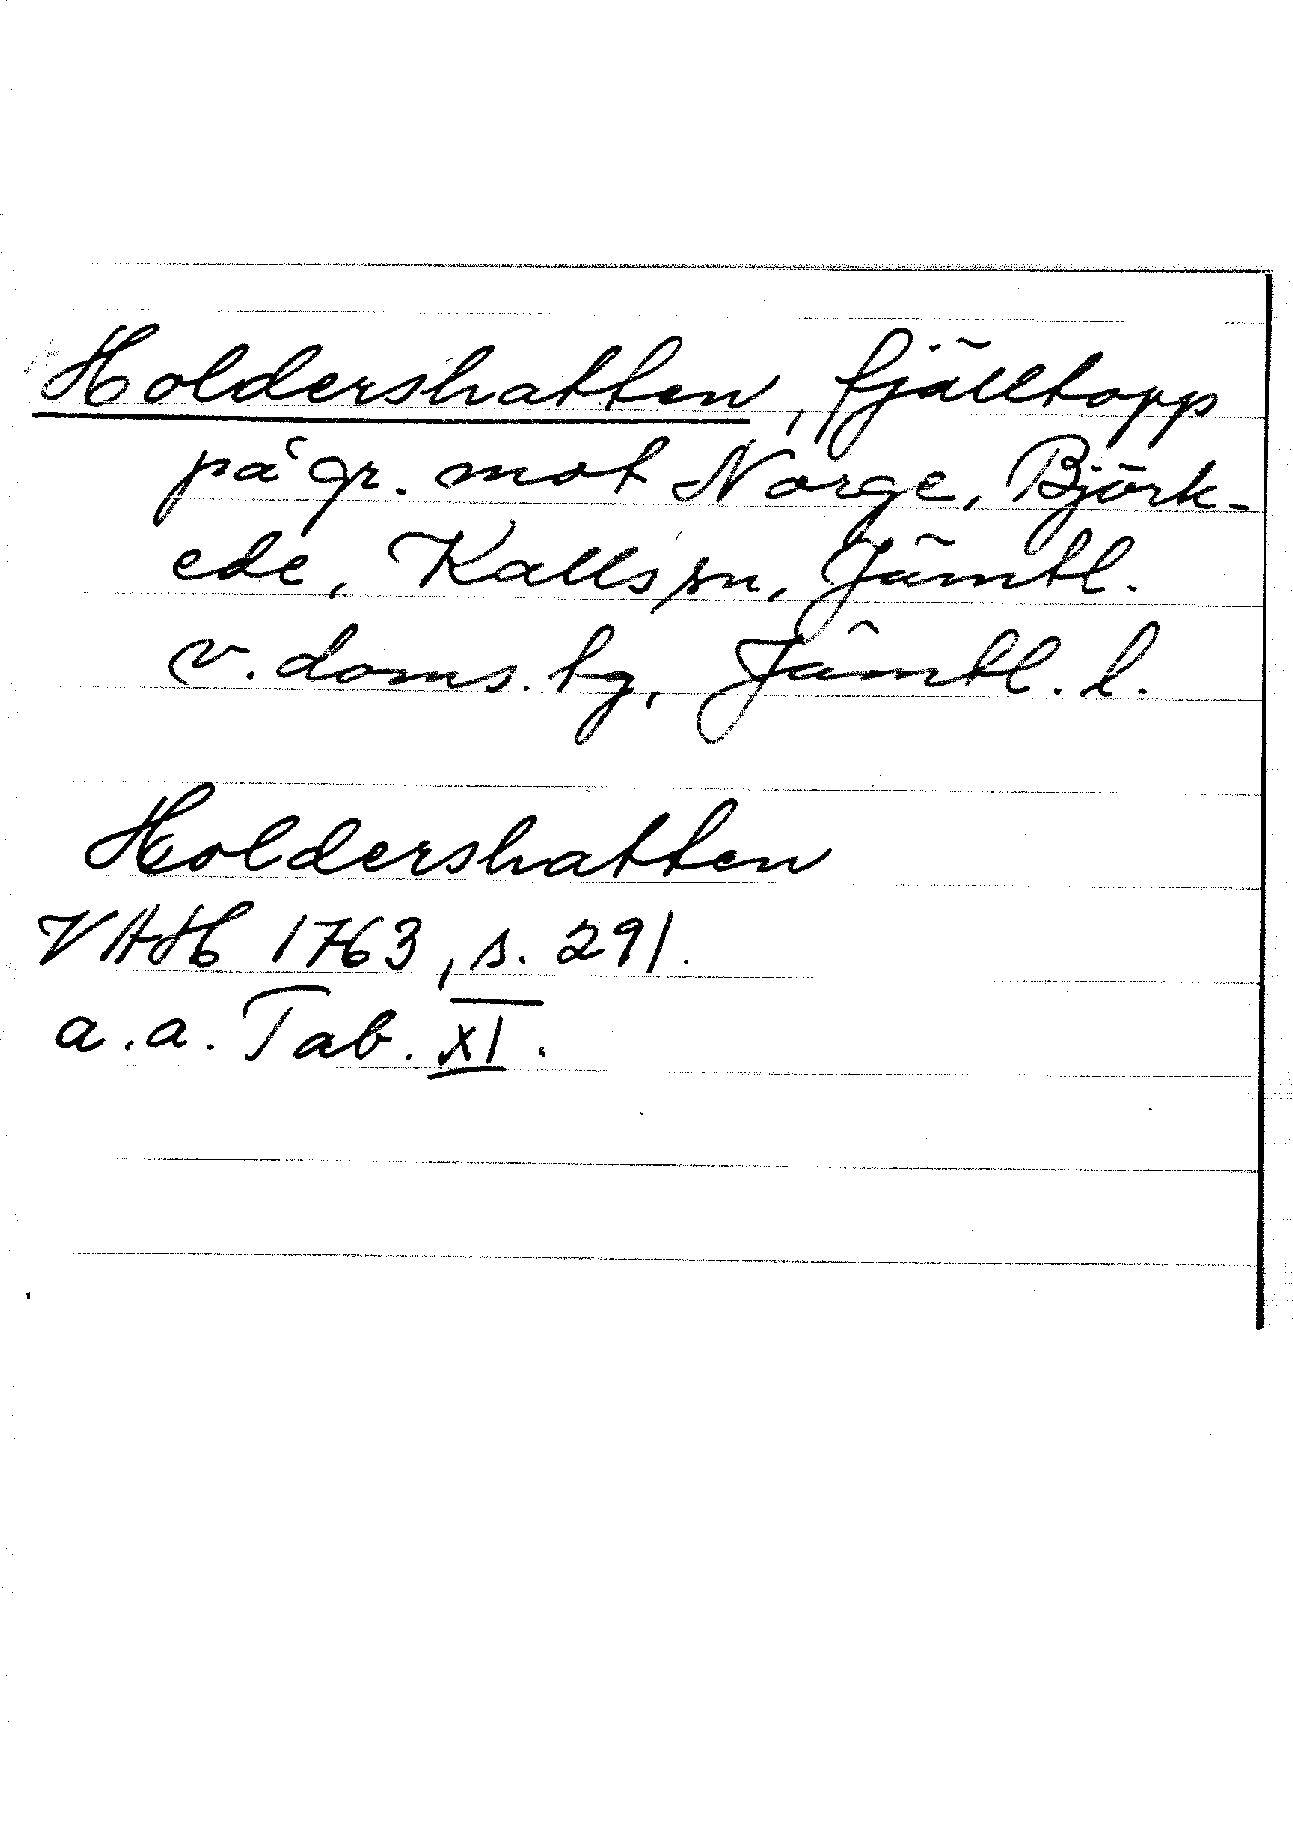 Holdershatten, fjälltopp
på gr. mot Norge, Björk-
ede, Kalls sn, Jämtl.
v. doms. tg, Jämtl. l.
Holdershatten
VAH 1763, s. 291.
a. a. Tab. XI.